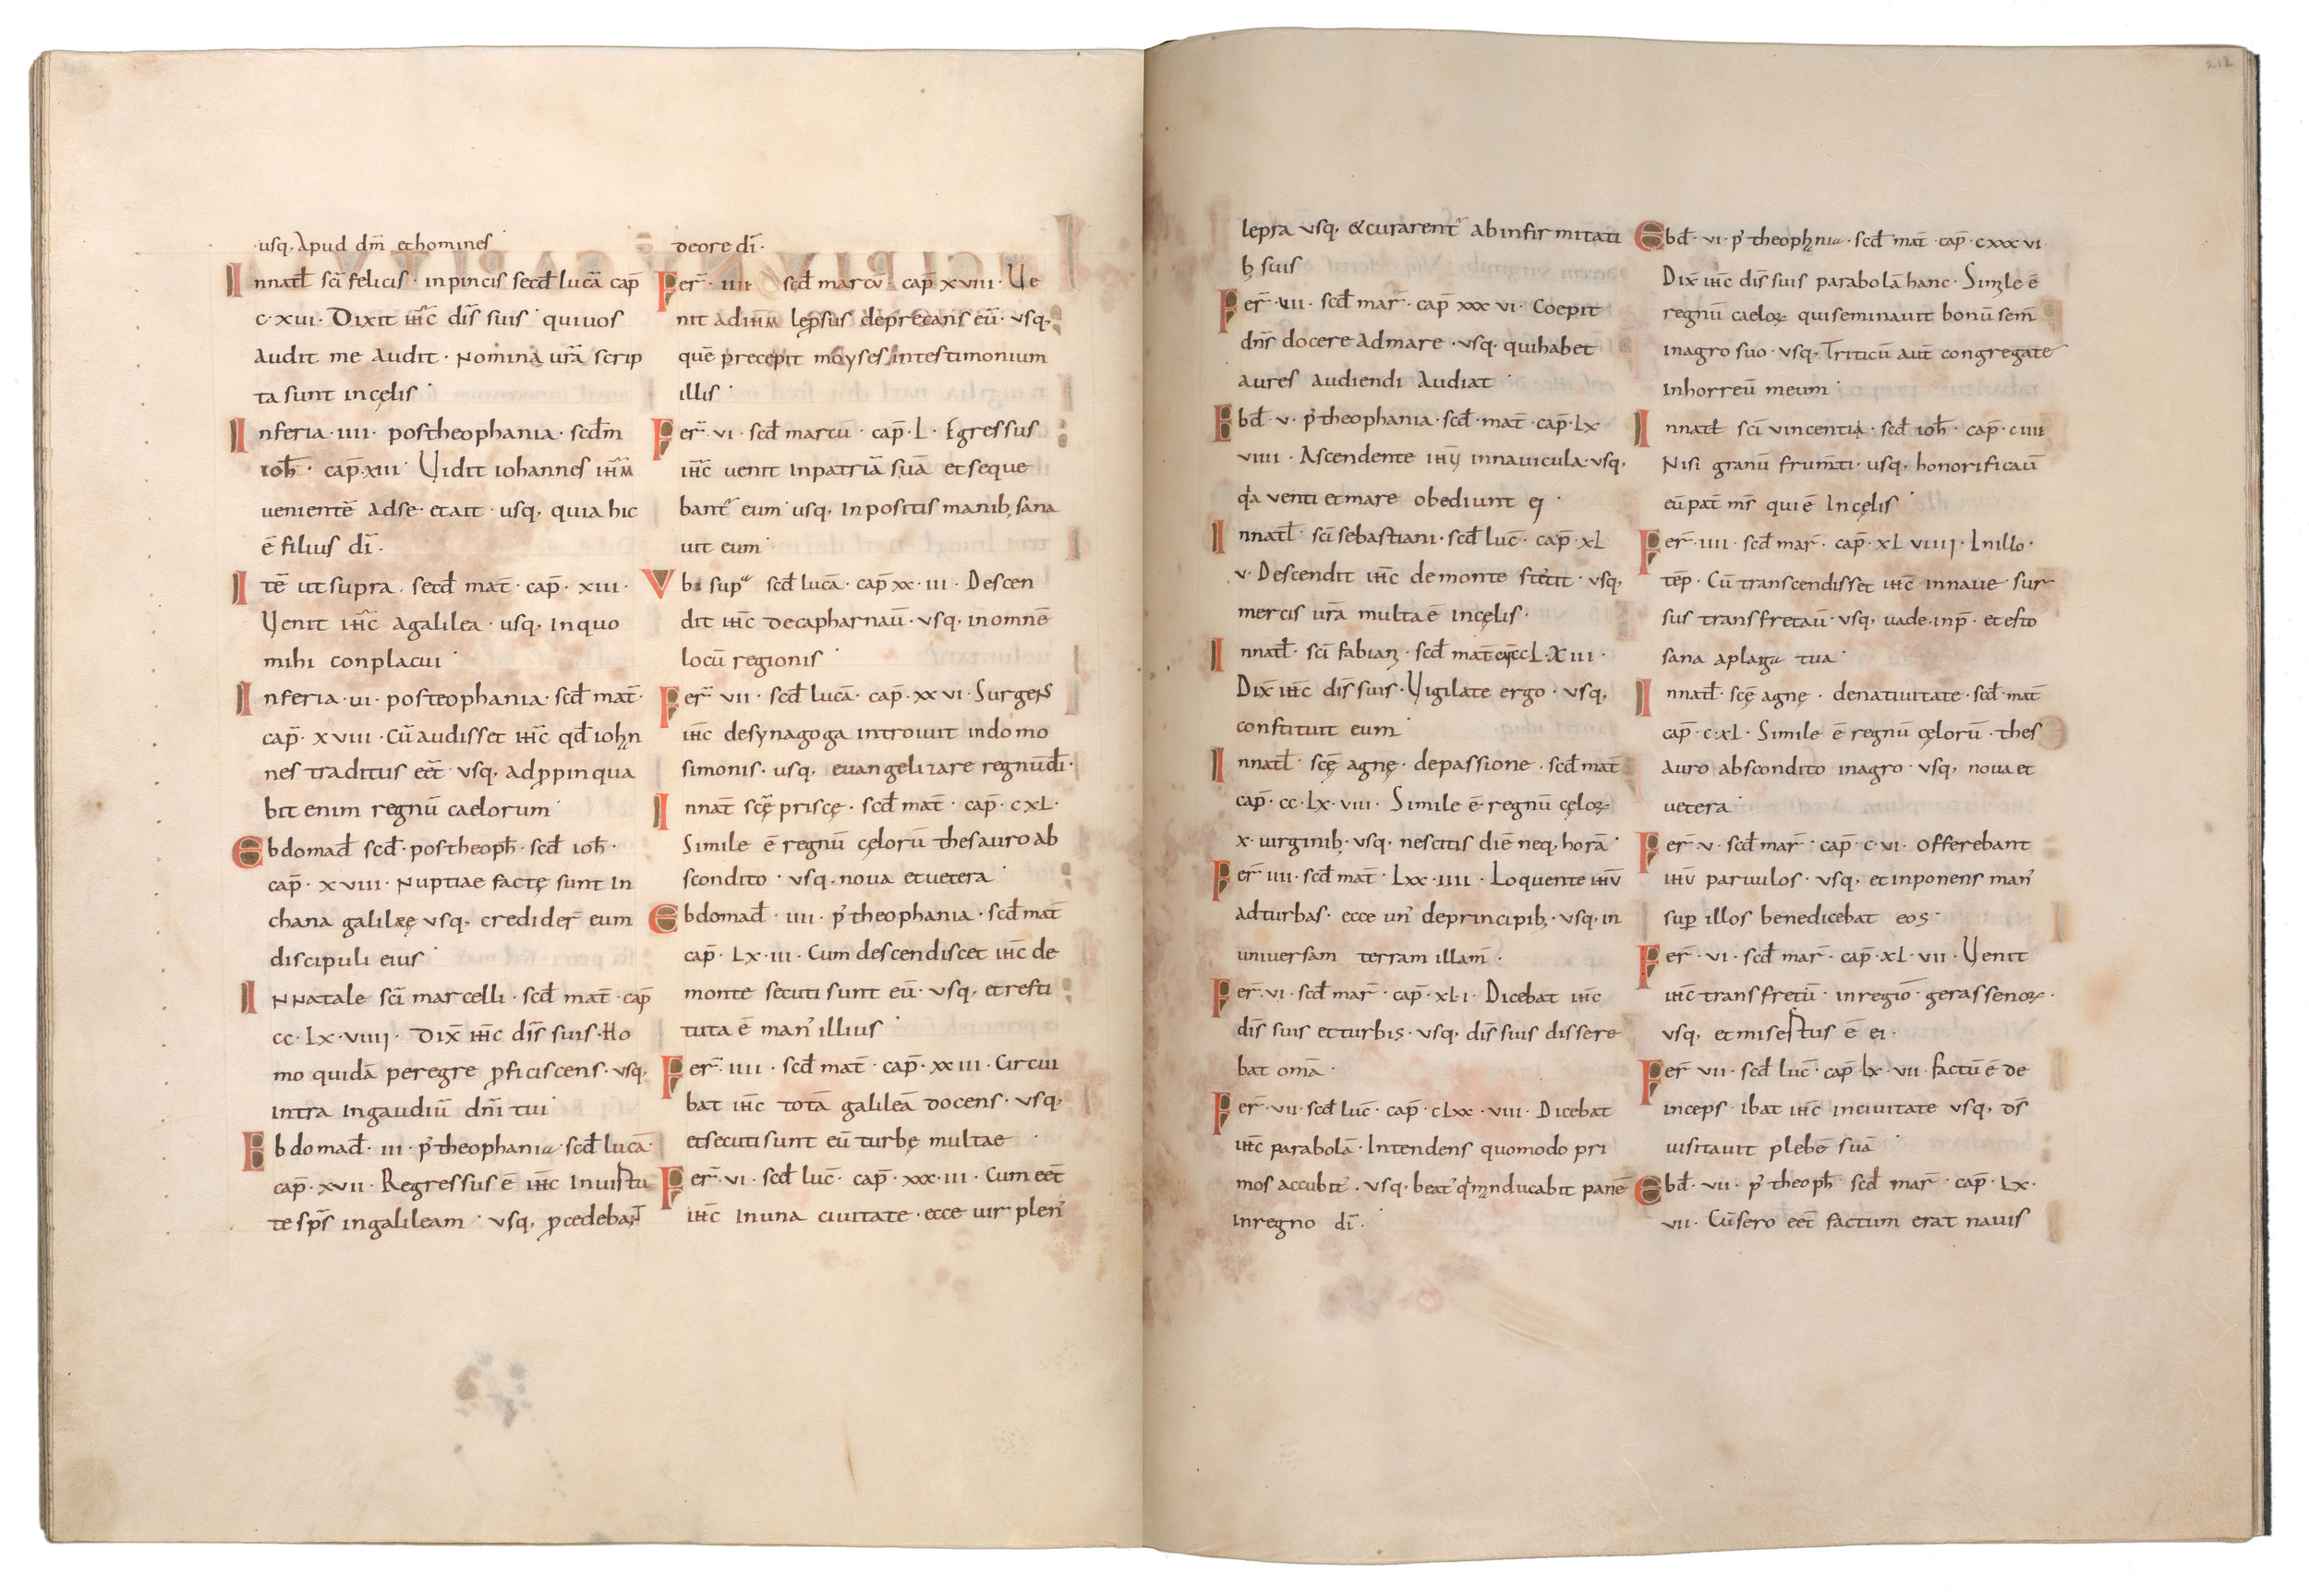 usq, Apud dm̄ ethomines
Innatł sci felicis · inpincis secđ lucā cap̄
c·xvi· Dixit ihc̄ dis̄ suis · quiuos
audit me audit · Nomina ur̄a scrip
ta sunt incęlis
Inferia · iiii · postheophania · scđm
ioħ · cap̄ xiii · Vidit iohannes ihm̄
uenientē adse · etait · usq, quia hic
ē filius dī ·
Itē ut supra · secđ mat̄ · cap̄ · xiii ·
Venit ihc̄ agalilea · usq, inquo
mihi conplacui
Inferia · ui · posteophania · scđ mat̄ ·
cap̄ · xviii · Cū audisset ihc̄ qđ iohn
nes traditus eēt usq, adppinqua
bit enim regnū caelorum
Ebdomađ scđ · postheopħ · scđ ioħ ·
cap̄ · xviii · Nuptiae factę sunt in
chana galilęę usq, credider̄ eum
discipuli eius
INNatale sci marcelli · scđ mat̄ · cap̄
cc·Lx·viiij · Dix̄ ihc̄ dis̄ suis · Ho
mo quidā peregre pficiscens · usq,
intra ingaudiū dnī tui
Ebdomađ · iii · p̓ theophania · scđ lucā ·
cap̄ · xvii · Regressus ē ihc̄ Inuirtu
te sps̄ ingalileam · usq, pcedebaт
deore dī ·
Fer̄ · iiii · scđ marcū · cap̄ xviii · Ve
nit adihm̄ leprsus deprecans eū · vsq,
quē precepit moyses intestimonium
illis
Fer̄ · vi · scđ marcū · cap̄ · L · Egressus
ihc̄ uenit inpatriā suā etseque
bant̄ eum usq, Inpositis manib, sana
uit eum
Vbi supa scđ lucā · cap̄ xx·iii · Descen
dit ihc̄ decapharnaū · vsq, inomnē
locū regionis
Fer̄ vii · scđ lucā · cap̄ · xxvi · Surgens
ihc̄ desynagoga introiuit indomo
simonis · usq, euangelizare regnūdī ·
Innat̄ scę priscę · scđ mat̄ · cap̄ · cxL ·
Simile ē regnū cęlorū thesauro ab
scondito · vsq, noua etuetera
Ebdomađ · iiii · p̓ theophania · scđ mat̄
cap̄ · Lx·iii · Cum descendisset ihc̄ de
monte secuti sunt eū · vsq, etresti
tuta ē man̓ illius
Fer̄ · iiii · scđ mat̄ · cap̄ · xxiii · Circui
bat ihc̄ totā galileā docens · vsq,
etsecuti sunt eū turbę multae
Fer̄ · vi · scđ luc̄ · cap̄ · xxx·iii · Cum eēt
ihc̄ Inuna ciuitate · ecce uir plen̓
lepra vsq, &curarent̄ abinfirmitati
b, suis
Fer̄ · vii · scđ mar̄ · cap̄ xxxvi · Coepit
dnr̄ docere admare · vsq, quihabet
aures audiendi audiat
Ebđ · v · p̓ theophania · scđ · mat̄ · cap̄ · Lx
viiii · Ascendente ihū innauicula · vsq,
qa venti etmare obediunt ei
Innatł · sci sebastiani · scđ luc̄ · cap̄ · xL
v · Descendit ihc̄ demonte stetit · vsq,
mercis ur̄a multa ē incęlis ·
Innatł · sci fabiani · scđ mat̄ ccL·Xiii ·
Dix̄ ihc̄ dis̄ suis · Vigilate ergo · vsq,
constituit eum
Innatł · scę agnę · depassione · scđ mat̄
cap̄ · cc·Lx·viii · Simile ē regnū cęloꝝ
x · uirginib, · vsq, nescitis diē neq, horā
Fer̄ iiii · scđ mat̄ · Lxx·iiii · Loquente ihū
adturbas · ecce un̓ deprincipib, · vsq, in
uniuersam terram illam ·
Fer̄ · vi · scđ mar̄ · cap̄ · xL·i · Dicebat ihc̄
dis̄ suis etturbis · vsq, dis̄ suis dissere
bat omā ·
Fer̄ · vii · scđ luc̄ · cap̄ · cLxx·viii · Dicebat
ihc̄ parabolā · Intendens quomodo pri
mos accubit̓ · vsq, beat̓ q manducabit panē
inregno dī ·
Ebđ · vi · p̓ theophnia · scđ mat̄ · cap̄ · cxxxvi ·
Dix̄ ihc̄ dis̄ suis parabolā hanc · Simile ē
regnū caeloꝝ quiseminauit bonū sem̄
inagro suo · vsq, Triticū aut̄ congregate
inhorreū meum
Innatł sci vincentii · scđ ioħ · cap̄ · ciiii
Nisi granū frum̄ti · usq, honorificaū
eū pat̄ mr̄ qui ē Incęlis
Fer̄ · iiii · scđ mar̄ · cap̄ · xLviiij · Inillo ·
tēp̄ · Cū transcendisset ihc̄ innaue sur
sus transfretaū · vsq, uade · inp̄ · etesto
sana aplaga tua
Innatł · scę agnę · denatiuitate · scđ · mat̄
cap̄ · c·xL · Simile ē regnū cęlorū · thes
auro abscondito inagro · vsq, nouaet
uetera
Fer̄ · v · scđ mar̄ · cap̄ · c·vi · Offerebant
ihū paruulos · vsq, etinponens man̓
sup̄ illos benedicebat eos ·
Fer̄ · vi · scđ mar̄ · cap̄ · xL·vii · Venit
ihc̄ transfretū · inregiō · gerassenoꝝ ·
vsq, etmisertus ē ei ·
Fer̄ vii · scđ luc̄ · cap̄ Lx·vii · factū ē de
inceps · ibat ihc̄ inciuitate vsq, ds̄
uisitauit plebē suā
Ebđ · vii · p̓ theopħ · scđ mar̄ · cap̄ · Lx ·
vii · Cū sero eēt factum erat nauis
212